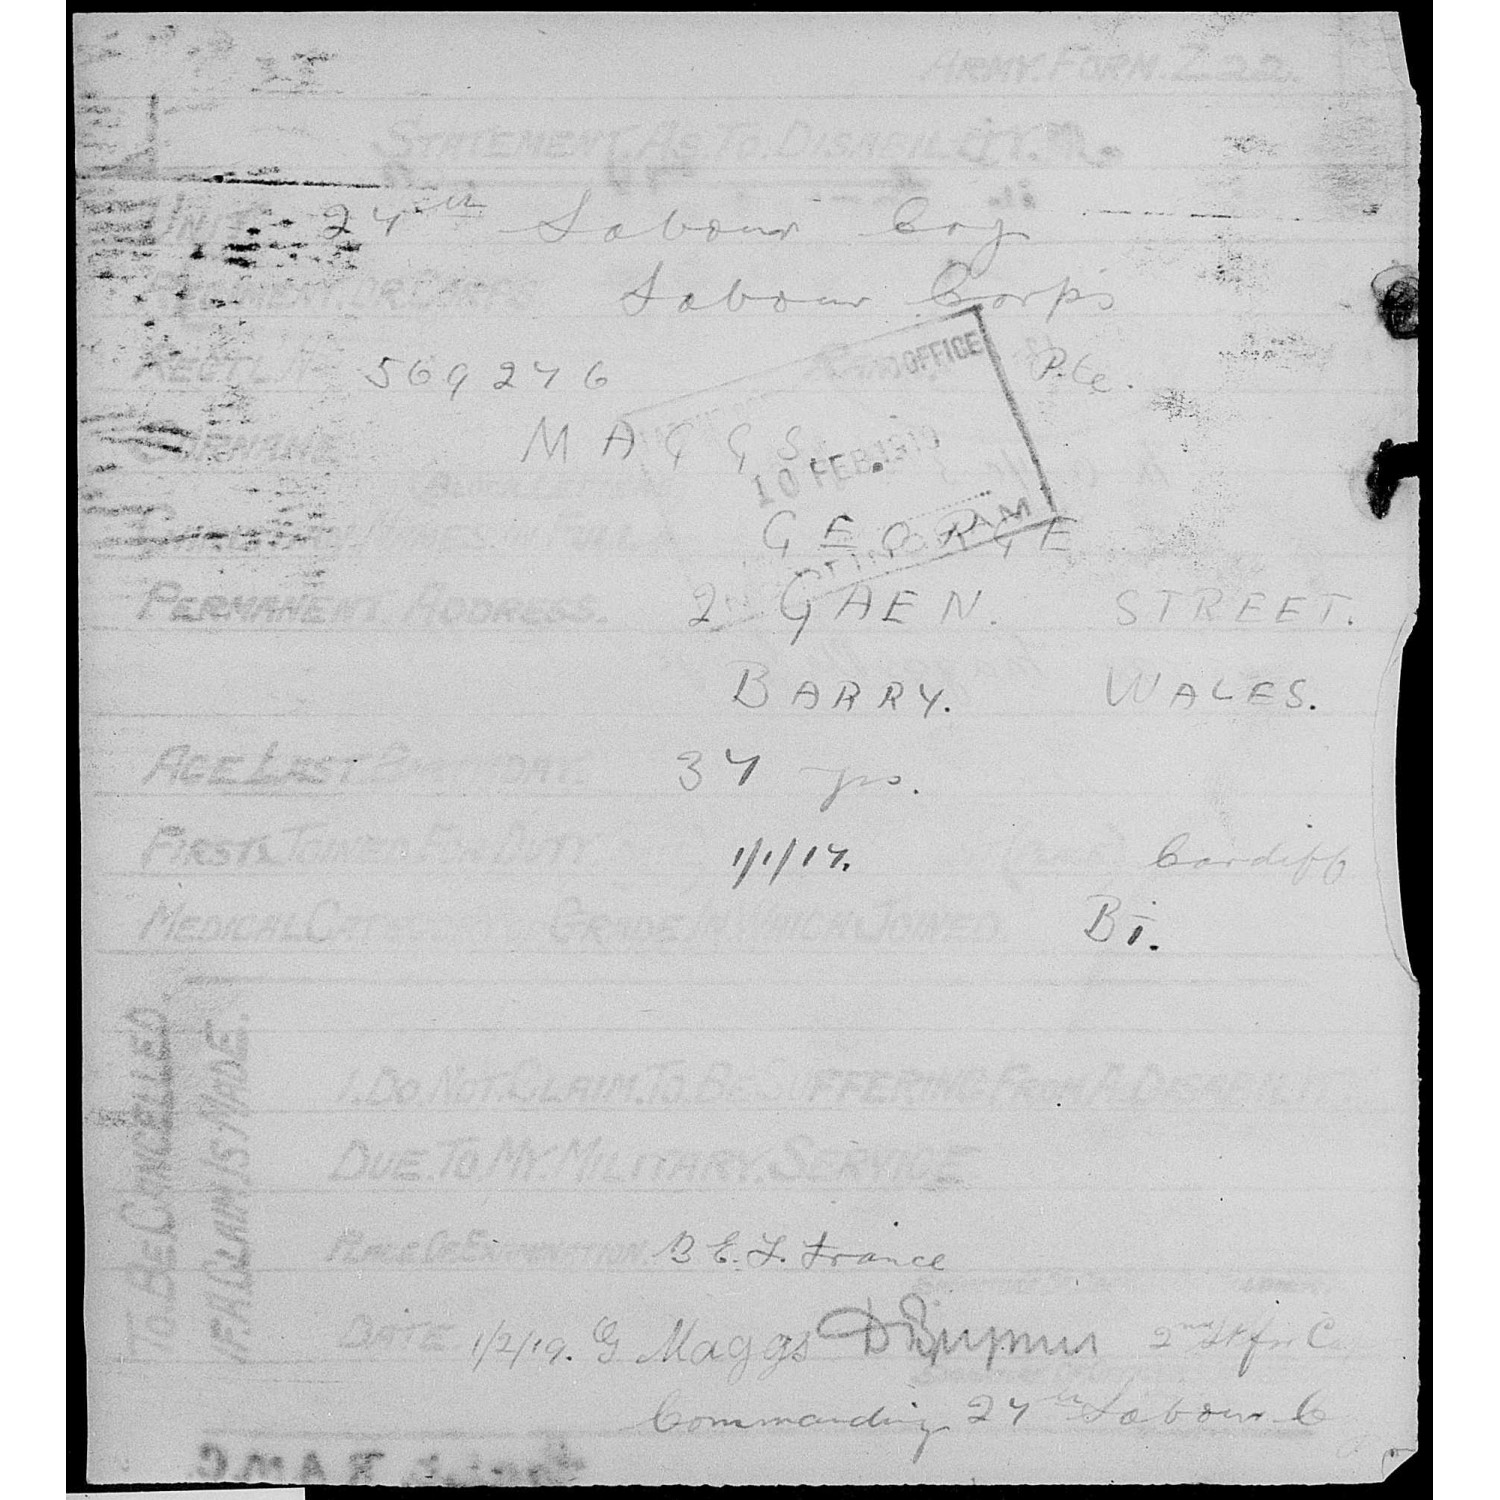 ARMY. FORM. Z. 22.
STATEMENT. AS. TO. DISABILITY.
UNIT 27th Labour Coy
REGIMENT. OR. CORPS Labour Corps
REGTL. No 569276 Pte.
SURNAME MAGGS.
(BLOCK LETTERS)
CHRISTIAN NAMES. IN FULL GEORGE
OFFICE
10 FEB 1919
PERMANENT. ADDRESS. 2 GAEN. STREET.
BARRY. WALES.
AGE LAST BIRTHDAY. 37 yrs.
FIRST JOINED FOR DUTY 1/1/17. Cardiff
MEDICAL CAT GRADE IN WHICH JOINED Bi.
TO. BE CANCELLED
IF. A CLAIM IS MADE.
I. DO. NOT. CLAIM. TO. BE SUFFERING FROM A DISABILITY
DUE. TO. MY. MILITARY. SERVICE
PLACE OF EXAMINATION. B. E. F. France
DATE 1/2/19. G Maggs 2nd Lt for
Commanding 27th Labour C